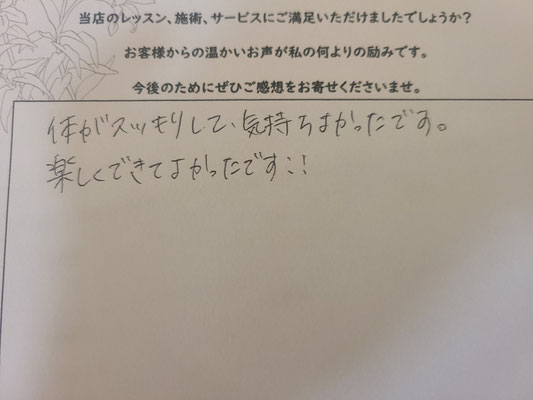 当店のレッスン、施術、サービスにご満足いただけましたでしょうか？
お客様からの温かいお声が私の何よりの励みです。
今後のためにぜひご感想をお寄せくださいませ。
体がスッキリして、気持ちよかったです。
楽しくできてよかったです!!